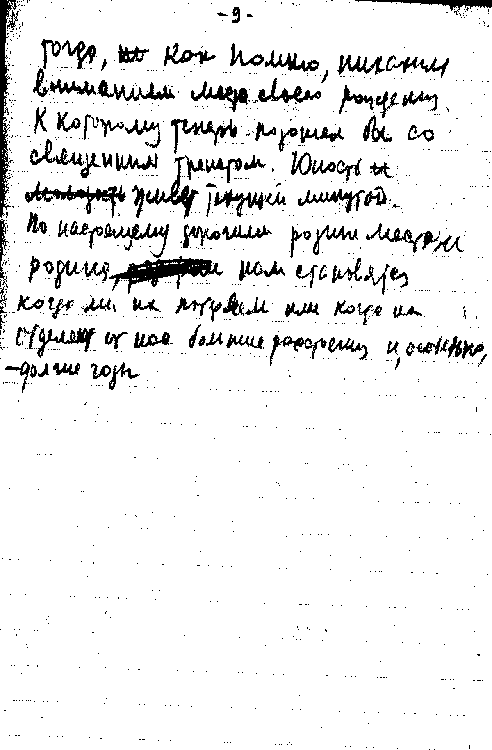 - 9 -
тогда, как помню, никаким
вниманием место своего рождения.
К которому теперь подошел бы со
священным трепетом. Юность
живет текущей минутой.
По настоящему дорогими родные места и
родина, нам становятся
когда мы их потеряем или когда их
отделяют от нас большие расстояния и, особенно,
- долгие годы